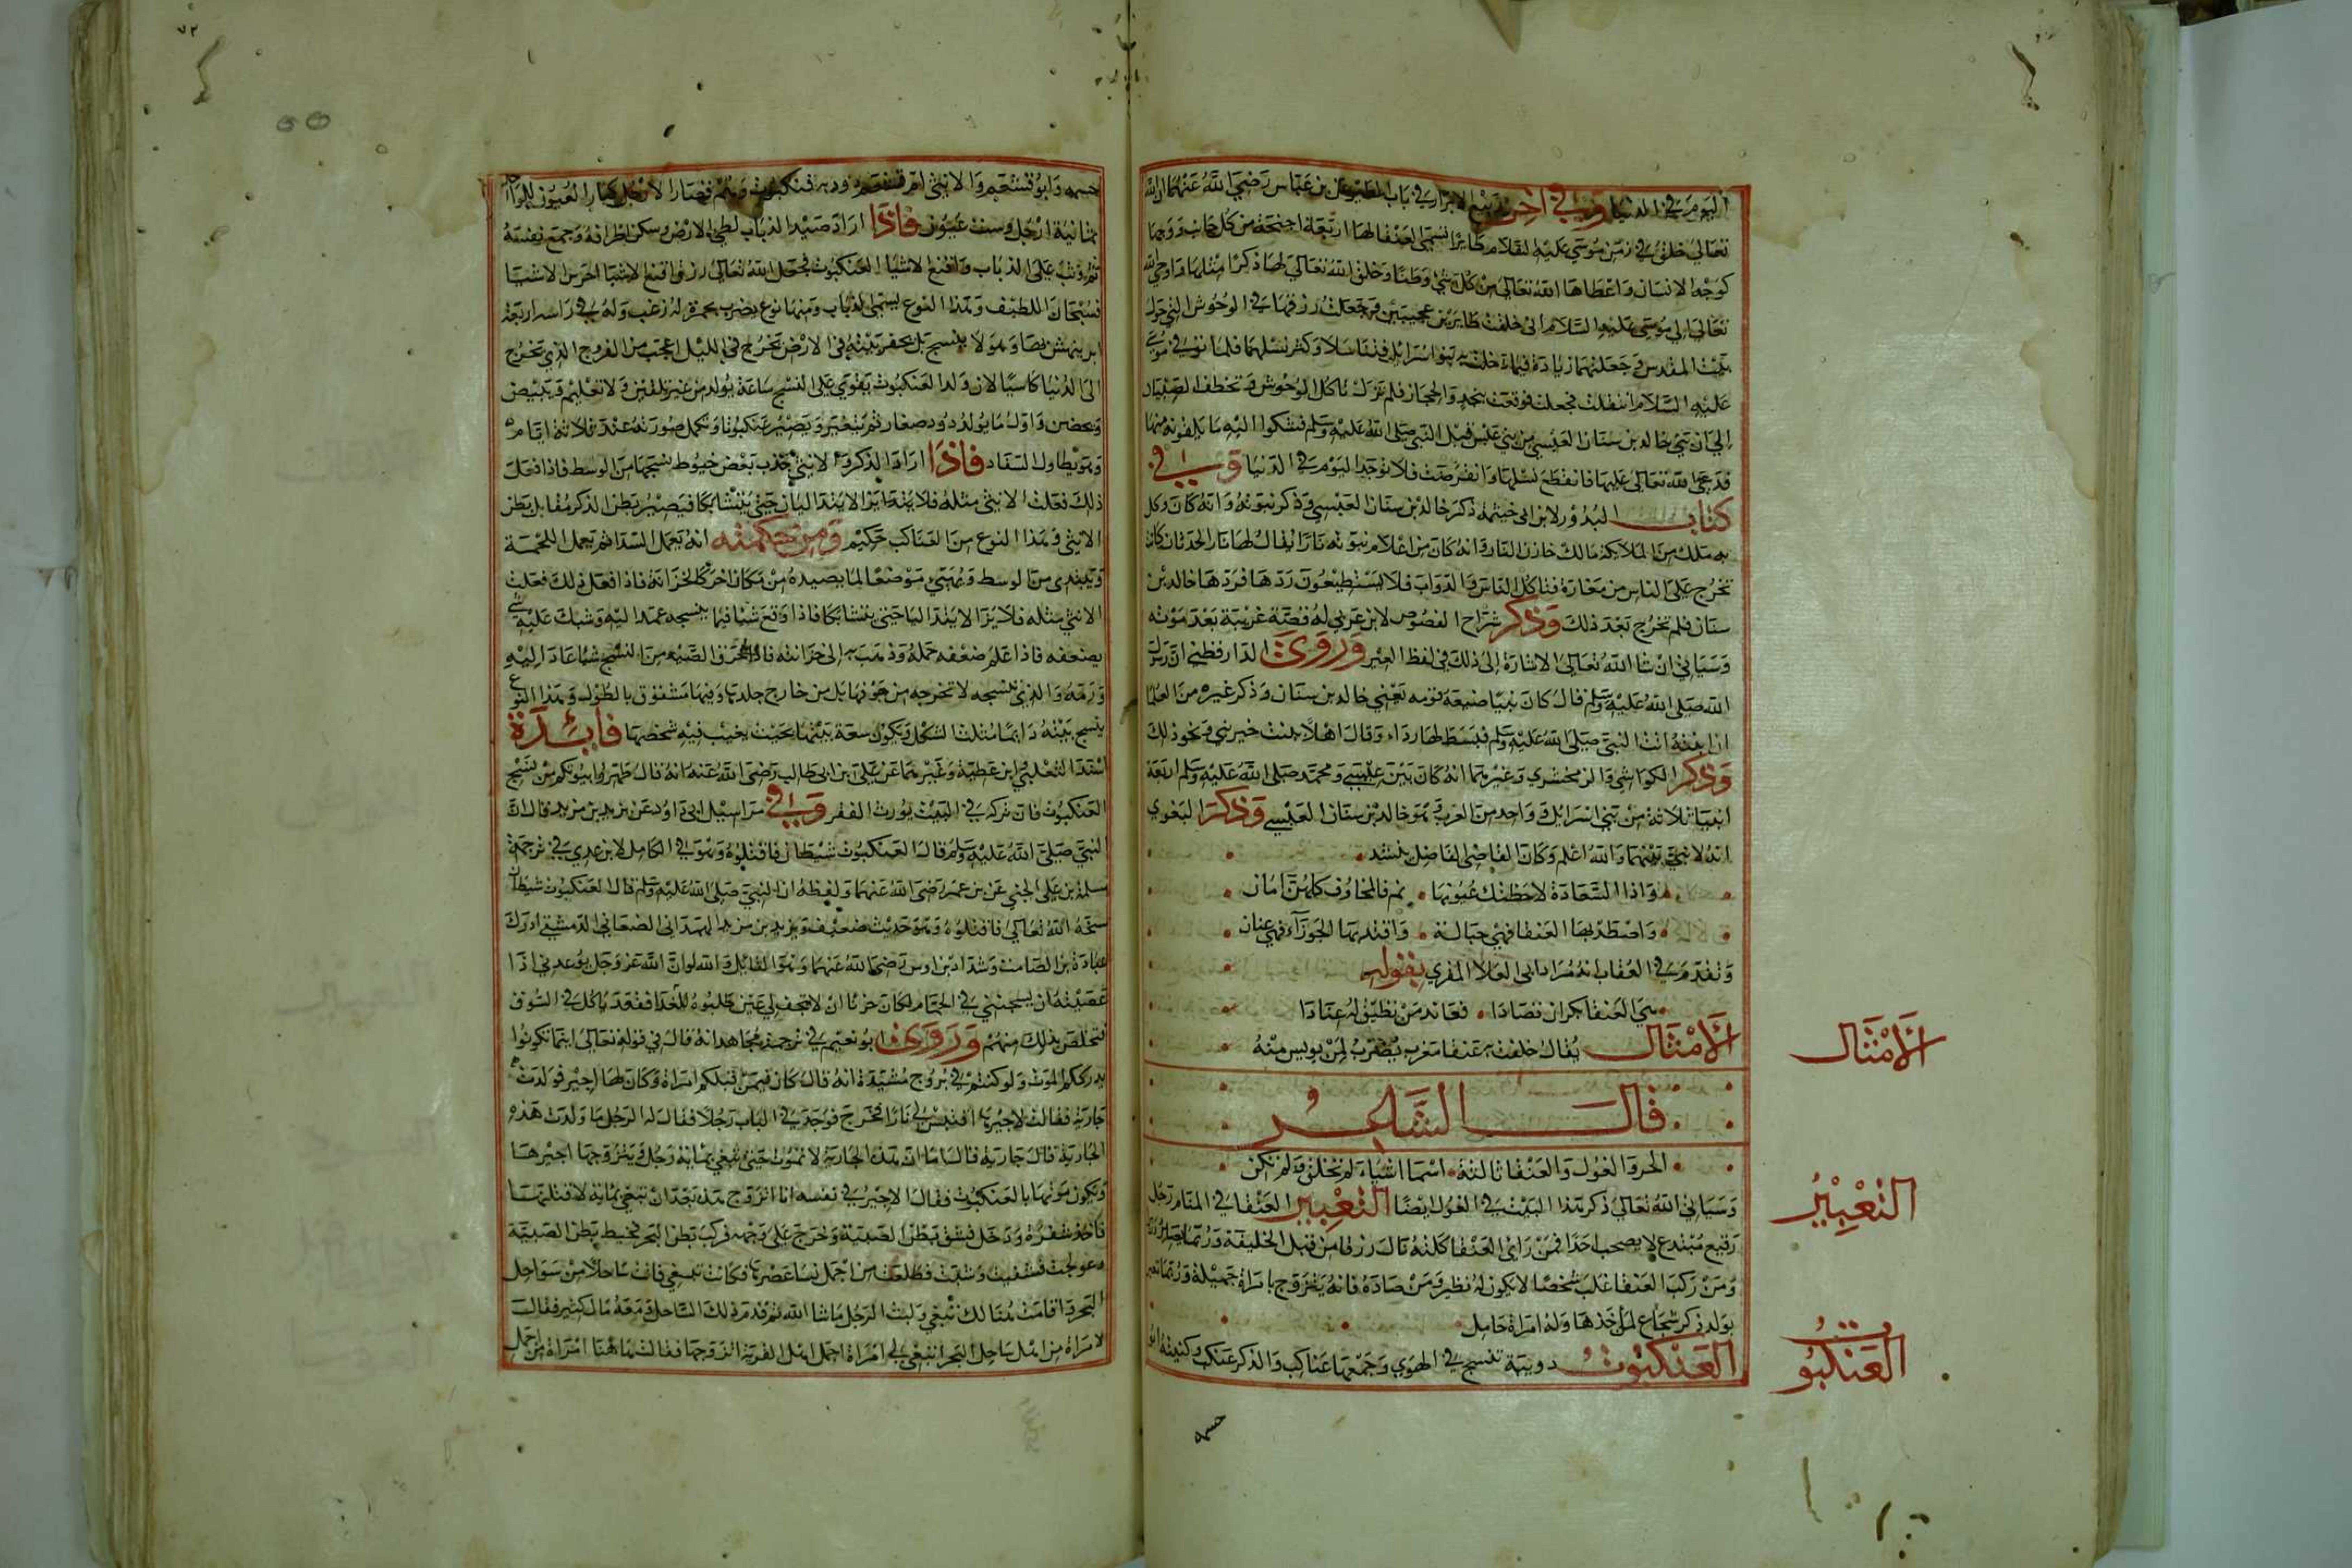 اليوم في الدنيا وفي آخر ربيع الابرار في باب الطير عن ابن عباس رضي الله عنهما ان الله
تعالى خلق في زمن موسى عليه السلام طائرا تسمى العنقا لها اربعة اجنحة من كل جانب ووجهها
كوجه الانسان واعطاها الله تعالى من كل شي وخلق الله تعالى لها ذكرا مثلها واوحى الله
تعالى الى موسى عليه السلام اني خلقت طائرين عجيبين وجعلت رزقهما في الوحوش التي حول
بيت المقدس وجعلتهما زيادة فيما بنو اسرائيل فتناسلا وكثر نسلهما فلما توفي موسى
عليه السلام انتقلت فوقعت بنجد والحجاز فلم تزل تاكل الوحوش وتخطف الصبيان
الى ان نبي خالد بن سنان العبسي من بني عبس قبل النبي صلى الله عليه وسلم فشكوا اليه ما يلقونه منها
فدعى الله تعالى عليها فانقطع نسلها وانقرضت فلا توجد اليوم في الدنيا وفي
كتاب البدو لابن ابي خيثمة ذكر خالد بن سنان العبسي وذكر نبوته وانه كان وكل
به ملك من الملائكة مالك خازن النار وانه كان من اعلام نبوته نارا يقال لها نار الحدثان كانت
تخرج على الناس من مغارة فتاكل الناس والدواب فلا يستطيعون ردها فردها خالد بن
سنان فلم تخرج بعد ذلك وذكر شراح الفصوص لابن عربي له قصة غريبة بعد موته
وسياتي ان شا الله تعالى الاشارة الى ذلك في لفظ العير وروى الدارقطني ان رسول
الله صلى الله عليه وسلم قال كان نبيا ضيعه قومه يعني خالد بن سنان وذكر غيره من العلما
ان ابنته اتت النبي صلى الله عليه وسلم فبسط لها رداه وقال اهلا ببنت خير نبي ونحو ذلك
وذكر الكواشي والزمخشري وغيرهما انه كان بين عيسى ومحمد صلى الله عليه وسلم اربعة
انبيا ثلاثة من بني اسرائيل وواحد من العرب وهو خالد بن سنان العبسي وذكر البغوي
انه لا نبي بينهما والله اعلم وكان القاضي الفاضل ينشد
واذا السعادة لاحظتك عيونها نم فالمخاوف كلهن امان
واصطد بها العنقا فهي حبالة واقتد بها الجوزاء فهي عنان
وتقدم في العقاب انه مراد ابي العلا المعري بقوله
هي العنقا تكبر ان تصادا فعاند من تطيق له عنادا
الامثال يقال خلقت به عنقا مغرب يضرب لمن يويس منه
قال الشاعر
الجود والغول والعنقا ثالثة اسما اشياء لم تخلق ولم تكن
وسياتي ان شا الله تعالى ذكر هذا البيت في الغول ايضا التعبير العنقا في المنام رجل
رفيع مبتدع لا يصحب احدا فمن راى العنقا كلمته نال رزقا من قبل الخليفة وربما يصير وزيرا
ومن ركب العنقا غلب شخصا لا يكون له نظير ومن صاده فانه يتزوج بامراة جميلة وربما تعبر
بولد ذكر شجاع لمن اخذها وله امراة حامل
العنكبوت دويبة تنسج في الهوى وجمعها عناكب والذكر عنكب وكنيته ابو
خيثمه
الامثال
التعبير
العنكبوت
٧٢
وابو قشعم والانثى ام قشعم فنكبوت وهم قصار الارجل كبار العيون للواحد
ثمانية ارجل وست عيون فاذا اراد صيد الذباب لطي الارض وسكن اطرافه وجمع نفسه
ثم وثب على الذباب واقنع الاشيا العنكبوت فجعل الله تعالى رزق اقنع الاشيا احرص الاشيا
فسبحان اللطيف وهذا النوع يسمى الذباب ومنها نوع يضرب بحمرة له زغب وله في راسه اربع
ابر ينهش بها وهو لا ينسج بل يحفر بيته في الارض ويخرج في الليل اعجب من الفروج الذي تخرج
الى الدنيا كاسيا لان ولد العنكبوت يقوى على النسج ساعة يولد من غير تلقين ولا تعليم ويبيض
ويحضن واول ما يولد دود صغار ثم يتغير ويصير عنكبوتا وتكمل صورته عند ثلاثة ايام
وهو يطاول السفاد فاذا اراد الذكر الانثى جذب بعض خيوط نسجها من الوسط فاذا فعل
ذلك فعلت الانثى مثله فلا يزالا يتدانيان حتى يتشابكا فيصير بطن الذكر مقابل بطن
الانثى وهذا النوع من العناكب حكيم ومن حكمته انه يعمل السدا ثم يعمل اللحمة
ويبتدى من الوسط ويهيئ موضعا لما يصيده من مكان اخر كالخزانة فاذا فعل ذلك فعلت
الانثى مثله فلا يزالا حتى يتشابكا فاذا وقع شيا فيما ينسجه عمد اليه وشبك عليه شي
يضعفه فاذا علم ضعفه حمله وذهب به الى خزانته فاذا خرق الصيد من النسج شيا عاد اليه
ورمه والذي تنسجه لا تخرجه من جوفها بل من خارج جلدها وفيها مشقوق بالطول وهذا النوع
ينسج بيته دايما مثلث الشكل وتكون سعة بيتها بحيث يغيب فيه شخصها فايدة
اسند الثعلبي وابن عطية وغيرهما عن علي بن ابي طالب رضي الله عنه انه قال طهروا بيوتكم من نسج
العنكبوت فان تركه في البيت يورث الفقر وفي مراسيل ابي داود عن يزيد بن مزيد قال ان
النبي صلى الله عليه وسلم قال العنكبوت شيطان فاقتلوه وهو في الكامل لابن عدي في ترجمة
مسلمة بن علي الخشني عن ابن عمر رضي الله عنهما ولفظه ان النبي صلى الله عليه وسلم قال العنكبوت شيطان
مسخه الله تعالى فاقتلوه وهو حديث ضعيف ويزيد بن مزيد الهمداني الصنعاني الدمشقي ادرك
عبادة بن الصامت وشداد بن اوس رضي الله عنهما وهو القائل والله لو ان الله عز وجل يوعدني اذا
عصيته ان يسجنني في الحمام لكان حريا ان لا تجف لي عين طلبوه للقضا فقعد ياكل في السوق
فتخلص بذلك منهم وروى ابو نعيم في ترجمة مجاهد انه قال في قوله تعالى اينما تكونوا
يدرككم الموت ولو كنتم في بروج مشيدة انه قال كان فيمن قبلكم امراة وكان لها اجير فولدت
جارية فقالت لاجيرها اقتبس لي نارا فخرج فوجد في الباب رجلا فقال له الرجل ما ولدت هذه
الجارية قال جارية قال اما ان هذه الجارية لا تموت حتى تبغي بمائة رجل ويتزوجها اجيرها
ويكون موتها بالعنكبوت فقال الاجير في نفسه انا اتزوج هذه بعد ان تبغي بمائة لاقتلنها
فاخذ شفرة ودخل فشق بطن الصبية وخرج على وجهه فركب البحر فخيط بطن الصبية
وعولجت فشفيت وشبت فطلعت من اجمل نسا عصرها فكانت تبغي فاتت ساحلا من سواحل
البحر واقامت هنالك تبغي ولبث الرجل ما شا الله ثم قدم ذلك الساحل ومعه مال كثير فقال
لامراة من اهل ساحل البحر ابتغي لي امراة اجمل اهل القرية اتزوجها فقالت هاهنا امراة من اجمل